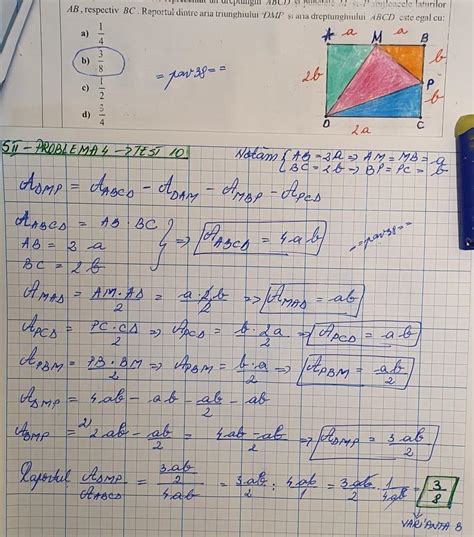 AB, respectiv BC. Raportul dintre aria triunghiului DMP și aria dreptunghiului ABCD este egal cu:
a) 1/4
b) 3/8
c) 1/2
d) 5/4
= pav38 = =
A a M a B
2b b
P
b
D 2a C
SII - PROBLEMA 4 → TEST 10
Notăm { AB = 2a ⇒ AM = MB = a
BC = 2b ⇒ BP = PC = b
A_DMP = A_ABCD - A_DAM - A_MBP - A_PCD
A_ABCD = AB · BC
AB = 2a
BC = 2b
} ⇒ A_ABCD = 4ab
= pav38 = =
A_MAD = AM·AD/2 = a·2b/2 ⇒ A_MAD = ab
A_PCD = PC·CD/2 ⇒ A_PCD = b·2a/2 ⇒ A_PCD = ab
A_PBM = PB·BM/2 ⇒ A_PBM = b·a/2 ⇒ A_PBM = ab/2
A_DMP = 4ab - ab - ab/2 - ab
A_DMP = 2) 2ab - ab/2 = 4ab - ab/2 ⇒ A_DMP = 3ab/2
Raportul A_DMP/A_ABCD = 3ab/2/4ab = 3ab/2 : 4ab/1 = 3ab/2 · 1/4ab = 3/8
VARIANTA B